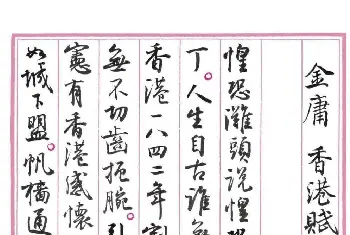 金庸 香港賦
惶恐灘頭說惶恐
丁。人生自古誰無
香港一八四二年割
無不切齒扼腕。引
憲有香港感懷
如城下盟。帆檣通